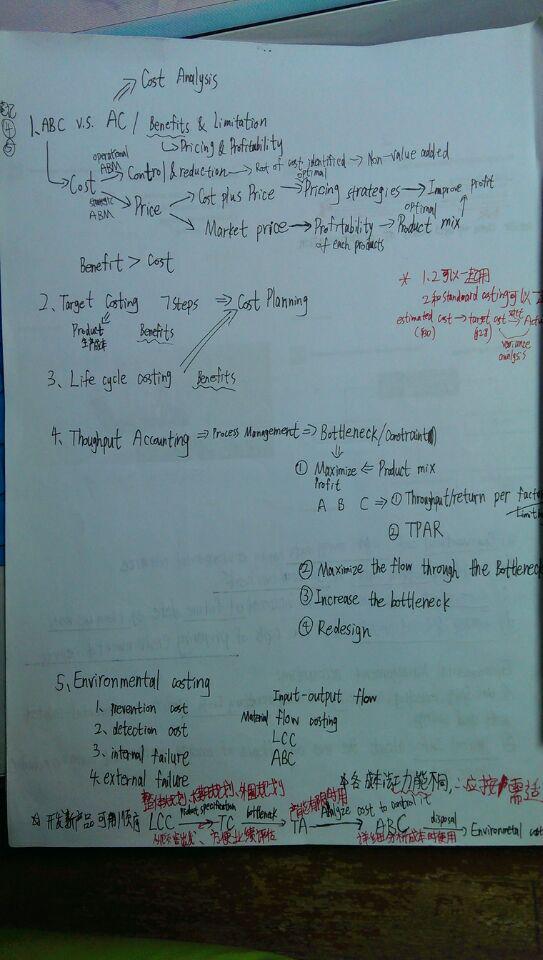 Cost Analysis
1、ABC v.s. AC / Benefits & Limitation
Pricing & Profitability
operational ABM
Cost → Control & reduction → Root of cost identified → Non-value added
strategic ABM
Price → Cost plus Price → optimal Pricing strategies → Improve profit
Market price → Profitability of each products → optimal Product mix
Benefit > Cost
2、Target Costing 7 steps ⇒ Cost Planning
Product Benefits
生产成本
* 1.2可以一起用
2和standard costing可以一
estimated cost → target cost → Actu
variance analysis
3、Life cycle costing Benefits
4、Thoughput Accounting ⇒ Process Management ⇒ Bottleneck/constraint
① Maximize Profit ⇐ Product mix
A B C ⇒ ① Throughput/return per factor
② TPAR
② Maximize the flow through the Bottleneck
③ Increase the bottleneck
④ Redesign
5、Environmental costing
Input-output flow
1、prevention cost
Material flow costing
2、detection cost
LCC
3、internal failure
ABC
4、external failure
各成本法力能不同,∴应按需适
开发新产品可用顺序 LCC → product specification TC → bottleneck TA → Analyze cost to control it ABC → disposal Environmental cost
详细分析成本时使用